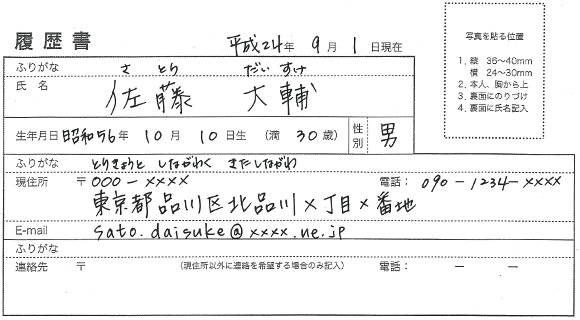 履歴書
平成24年 9月 1日現在
写真を貼る位置
1. 縦 36〜40mm
横 24〜30mm
2. 本人、胸から上
3. 裏面にのりづけ
4. 裏面に氏名記入
ふりがな さとう だいすけ
氏名 佐藤 大輔
生年月日 昭和56年 10月 10日生 (満 30歳) 性別 男
ふりがな とうきょうと しながわく きたしながわ
現住所 〒000-×××× 電話: 090-1234-××××
東京都品川区北品川×丁目×番地
E-mail sato.daisuke@xxxx.ne.jp
ふりがな
連絡先 〒 (現住所以外に連絡を希望する場合のみ記入) 電話: ― ―